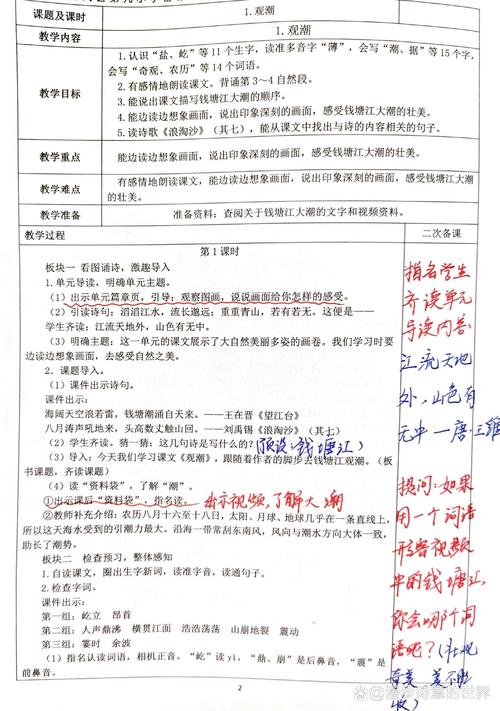 课题及课时 1.观潮
教学内容 1.观潮
教学目标
1.认识“盐、屹”等11个生字，读准多音字“薄”，会写“潮、据”等15个字，
会写“奇观、农历”等14个词语。
2.有感情地朗读课文。背诵第3～4自然段。
3.能说出课文描写钱塘江大潮的顺序。
4.能边读边想象画面，说出印象深刻的画面，感受钱塘江大潮的壮美。
5.读诗歌《浪淘沙》（其七），能从课文中找出与诗的内容相关的句子。
教学重点 能边读边想象画面，说出印象深刻的画面，感受钱塘江大潮的壮美。
教学难点 有感情地朗读课文，能边读边想象画面，说出印象深刻的画面，感受钱塘江大潮的
壮美。
教学准备 准备资料：查阅关于钱塘江大潮的文字和视频资料。
教学过程 二次备课
第1课时
板块一 看图诵诗，激趣导入
1.单元导读，明确单元主题。
（1）出示单元篇章页，引导：观察图画，说说画面给你怎样的感受。
（2）引读诗句：滔滔江水，流长邈远；重重青山，若有若无。这便是——
学生齐读：江流天地外，山色有无中。
（3）明确主题：这一单元的课文展示了大自然美丽多姿的画卷。我们学习时要
边读边想象画面，去感受自然之美。
2．课题导入。
（1）课件出示诗句。
课件出示：
海阔天空浪若雷，钱塘潮涌自天来。——王在晋《望江台》
八月涛声吼地来，头高数丈触山回。——刘禹锡《浪淘沙》（其七）
（2）学生齐读。猜一猜：这几句诗是写什么的？（预设：钱塘江）
（3）导入：今天我们学习课文《观潮》，跟随着作者的脚步去钱塘江观潮。（板
书课题，齐读课题）
（4）读“资料袋”，了解“潮”。
①出示课后“资料袋”，指名读。 出示视频，了解大潮
②教师补充介绍：农历八月十六至十八日，太阳、月球、地球几乎在一条直线上，
所以这天海水受到的引潮力最大。沿海一带常刮东南风，风向与潮水方向大体一致，
助长了潮势。
板块二 检查预习，整体感知
1.自读课文，圈出生字新词，读准字音，读通句子。
2.检查字词。
课件出示：
第一组：屹立 昂首
第二组：人声鼎沸 横贯江面 浩浩荡荡 山崩地裂 震动
第三组：霎时 余波
（1）指名认读词语，相机正音。“屹”读yì，“鼎、崩”是后鼻音，“震”是
前鼻音。
指名学生
齐读单元
导读内容：
江流天地
外，山色有
无中—唐 王维
提问：如果
用一个词语
形容视频
中的钱塘江，
你会哪个词
语呢？（壮观
奇美 美不胜
收）
2